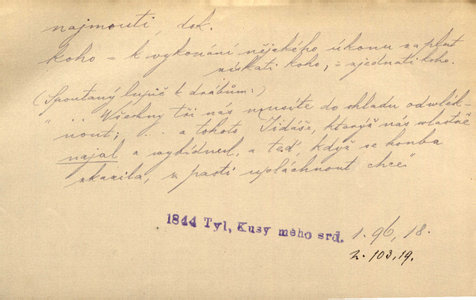 najmouti, dok.
koho – k vykonání nějakého úkonu za plat
získati koho, = zjednati koho.
(Spoutaný lupič k drábům:)
"... Všechny tři nás musíte do chladu odvlék-
nout; ... a tohoto Jidáše, který nás vlastně
najal a vyhídnul, a teď, když se honba
zkazila, z pasti upláchnout chce"
1844 Tyl, Kusy mého srd. 1. 96, 18.
2. 103, 19.